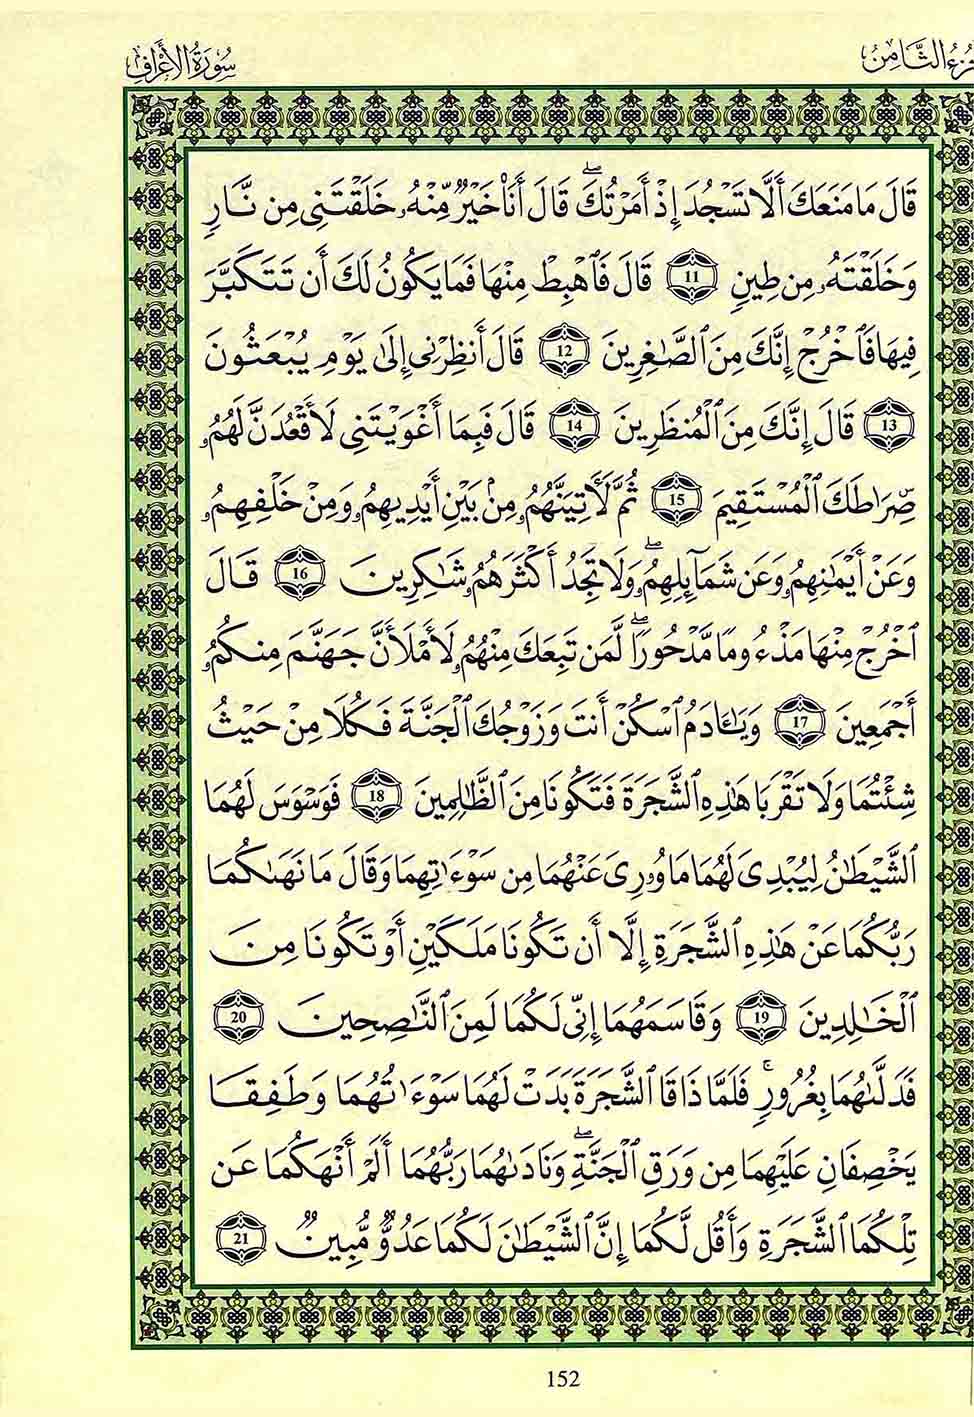 سُورَةُ الأَعْرَافِ
الثَّامِنُ
قَالَ مَا مَنَعَكَ أَلَّا تَسْجُدَ إِذْ أَمَرْتُكَ ۖ قَالَ أَنَا۠ خَيْرٌ مِّنْهُۥ خَلَقْتَنِى مِن نَّارٍ
وَخَلَقْتَهُۥ مِن طِينٍ 11 قَالَ فَٱهْبِطْ مِنْهَا فَمَا يَكُونُ لَكَ أَن تَتَكَبَّرَ
فِيهَا فَٱخْرُجْ إِنَّكَ مِنَ ٱلصَّٰغِرِينَ 12 قَالَ أَنظِرْنِى إِلَىٰ يَوْمِ يُبْعَثُونَ
13 قَالَ إِنَّكَ مِنَ ٱلْمُنظَرِينَ 14 قَالَ فَبِمَا أَغْوَيْتَنِى لَأَقْعُدَنَّ لَهُمُۥ
صِرَٰطَكَ ٱلْمُسْتَقِيمَ 15 ثُمَّ لَأٓتِيَنَّهُمُۥ مِنۢ بَيْنِ أَيْدِيهِمُۥ وَمِنْ خَلْفِهِمُۥ
وَعَنْ أَيْمَٰنِهِمُۥ وَعَن شَمَآئِلِهِمُۥ ۖ وَلَا تَجِدُ أَكْثَرَهُمُۥ شَٰكِرِينَ 16 قَالَ
ٱخْرُجْ مِنْهَا مَذْءُومًا مَّدْحُورًا ۖ لَّمَن تَبِعَكَ مِنْهُمُۥ لَأَمْلَأَنَّ جَهَنَّمَ مِنكُمُۥ
أَجْمَعِينَ 17 وَيَٰٓـَٔادَمُ ٱسْكُنْ أَنتَ وَزَوْجُكَ ٱلْجَنَّةَ فَكُلَا مِنْ حَيْثُ
شِئْتُمَا وَلَا تَقْرَبَا هَٰذِهِ ٱلشَّجَرَةَ فَتَكُونَا مِنَ ٱلظَّٰلِمِينَ 18 فَوَسْوَسَ لَهُمَا
ٱلشَّيْطَٰنُ لِيُبْدِىَ لَهُمَا مَا وُۥرِىَ عَنْهُمَا مِن سَوْءَٰتِهِمَا وَقَالَ مَا نَهَىٰكُمَا
رَبُّكُمَا عَنْ هَٰذِهِ ٱلشَّجَرَةِ إِلَّا أَن تَكُونَا مَلَكَيْنِ أَوْ تَكُونَا مِنَ
ٱلْخَٰلِدِينَ 19 وَقَاسَمَهُمَا إِنِّى لَكُمَا لَمِنَ ٱلنَّٰصِحِينَ 20
فَدَلَّىٰهُمَا بِغُرُورٍ ۚ فَلَمَّا ذَاقَا ٱلشَّجَرَةَ بَدَتْ لَهُمَا سَوْءَٰتُهُمَا وَطَفِقَا
يَخْصِفَانِ عَلَيْهِمَا مِن وَرَقِ ٱلْجَنَّةِ ۖ وَنَادَىٰهُمَا رَبُّهُمَا أَلَمْ أَنْهَكُمَا عَن
تِلْكُمَا ٱلشَّجَرَةِ وَأَقُل لَّكُمَا إِنَّ ٱلشَّيْطَٰنَ لَكُمَا عَدُوٌّ مُّبِينٌ 21
152